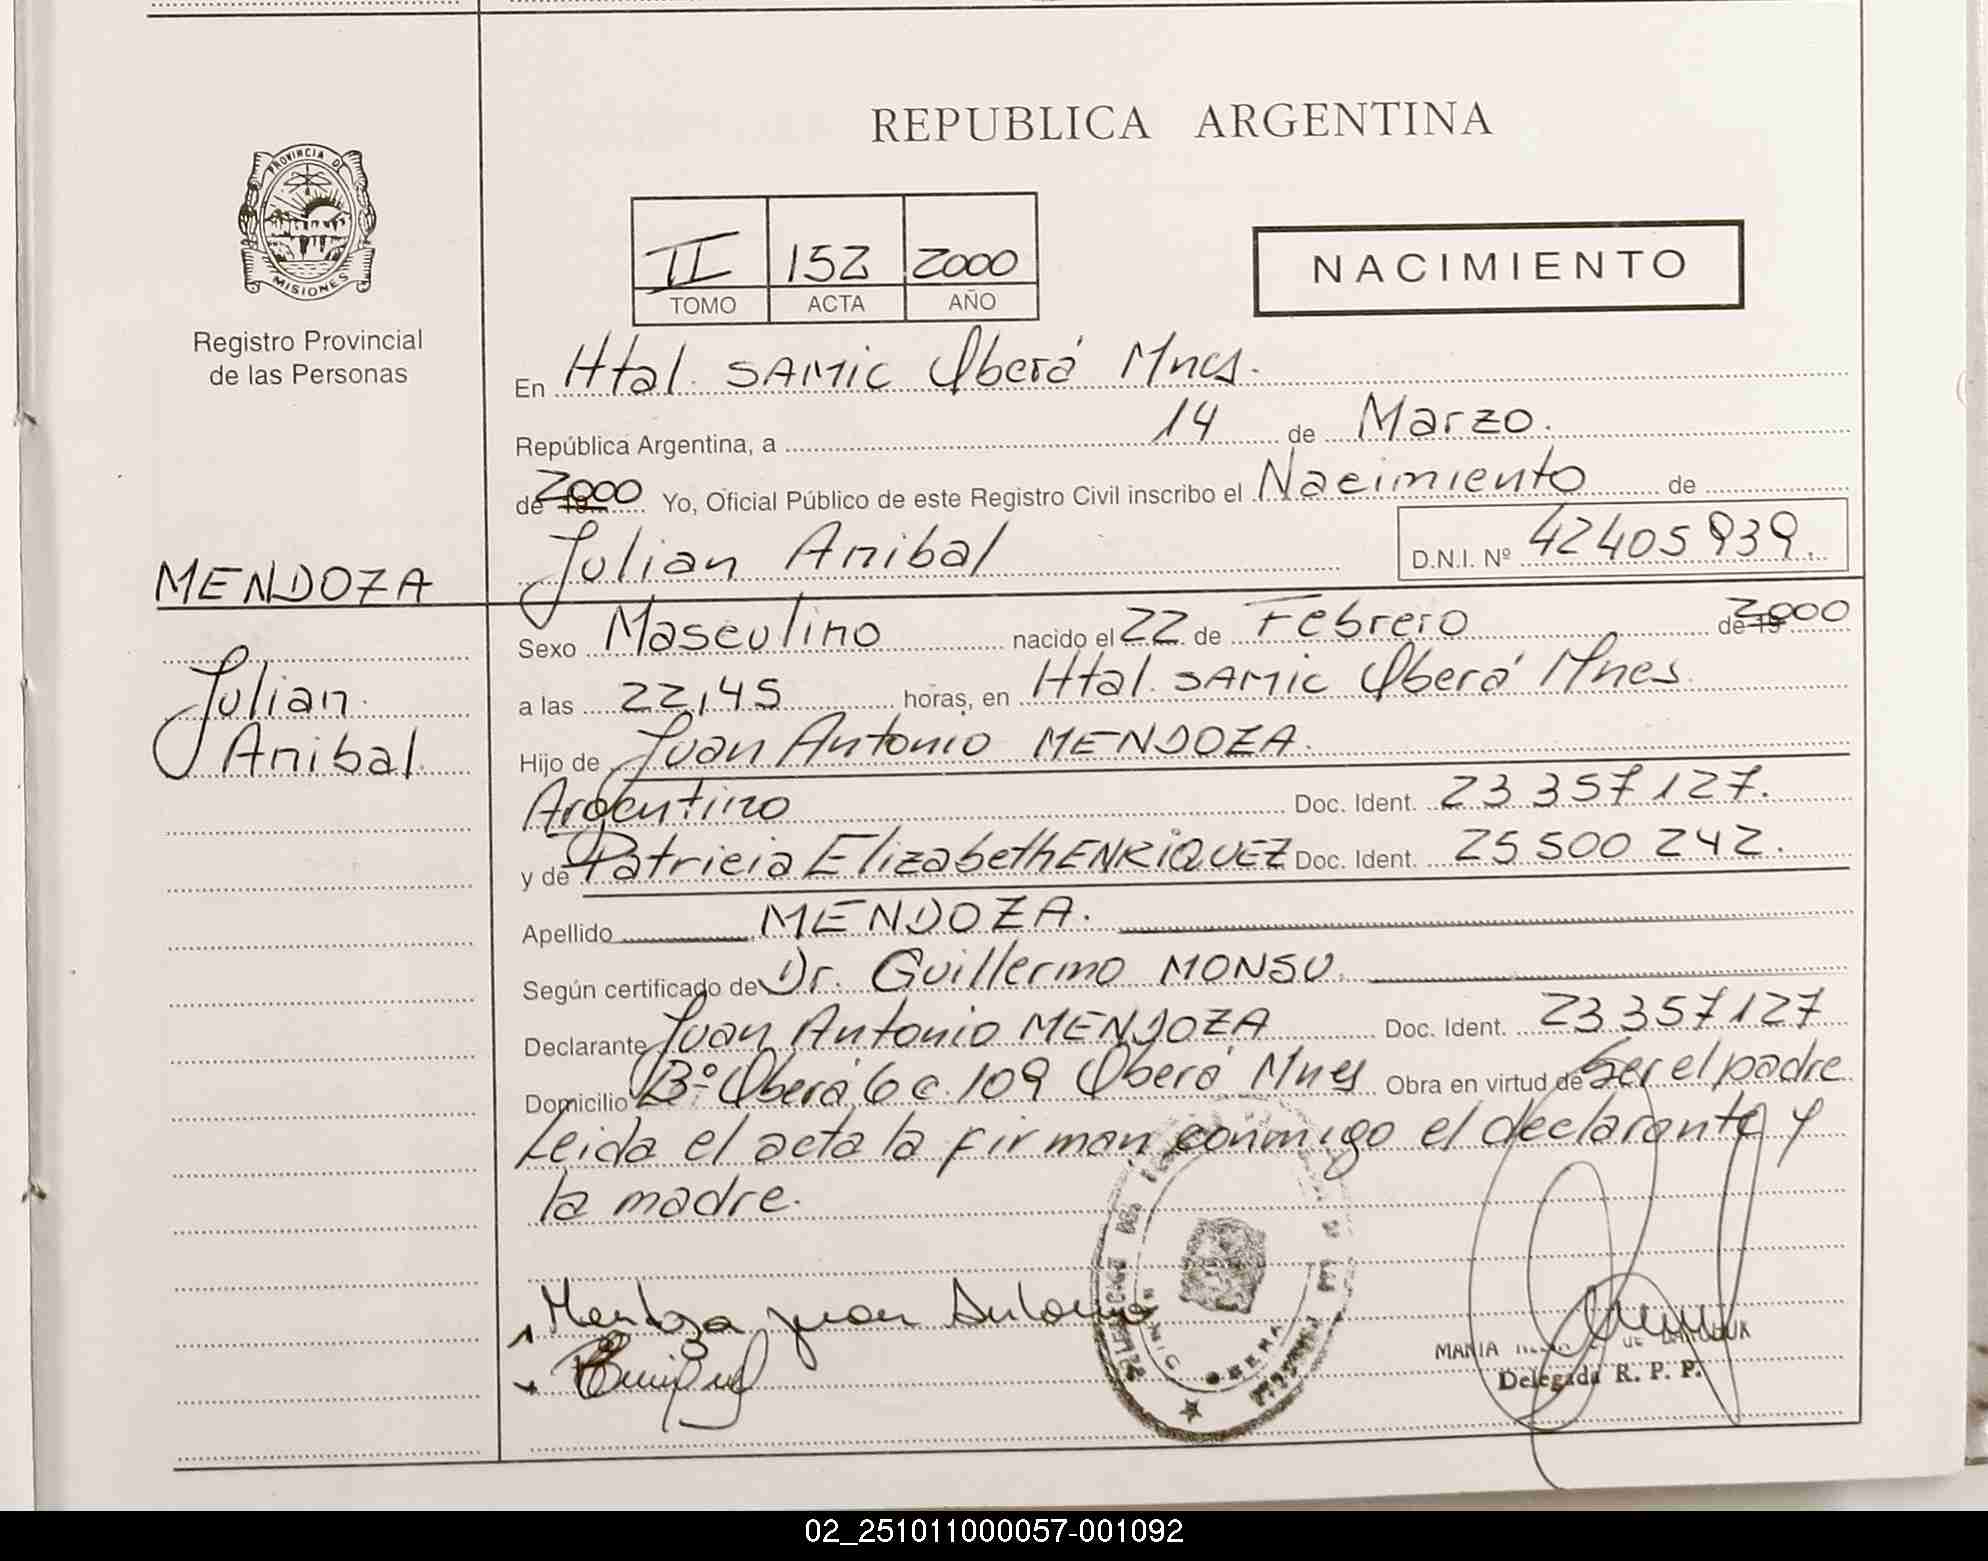 REPUBLICA ARGENTINA
PROVINCIA DE
MISIONES
Registro Provincial
de las Personas
II 152 2000
TOMO ACTA AÑO
NACIMIENTO
En Htal. SAMIC Oberá Mnes.
República Argentina, a 14 de Marzo.
de 19 2000 Yo, Oficial Público de este Registro Civil inscribo el Nacimiento de
Julian Anibal D.N.I. Nº 42405939.
MENDOZA
Julian
Anibal
Sexo Masculino nacido el 22 de Febrero de 19 2000
a las 22,45 horas, en Htal. SAMIC Oberá Mnes
Hijo de Juan Antonio MENDOZA.
Argentino Doc. Ident. 23 357 127.
y de Patricia Elizabeth ENRIQUEZ Doc. Ident. 25 500 242.
Apellido MENDOZA.
Según certificado de Dr. Guillermo MONSU.
Declarante Juan Antonio MENDOZA Doc. Ident. 23 357 127
Domicilio Bº Oberá 6 c. 109 Oberá Mnes Obra en virtud de Ser el padre
Leida el acta la firman conmigo el declarante y
la madre.
Mendoza Juan Antonio
OBERA
MARIA
Delegada R. P. P.
02_251011000057-001092